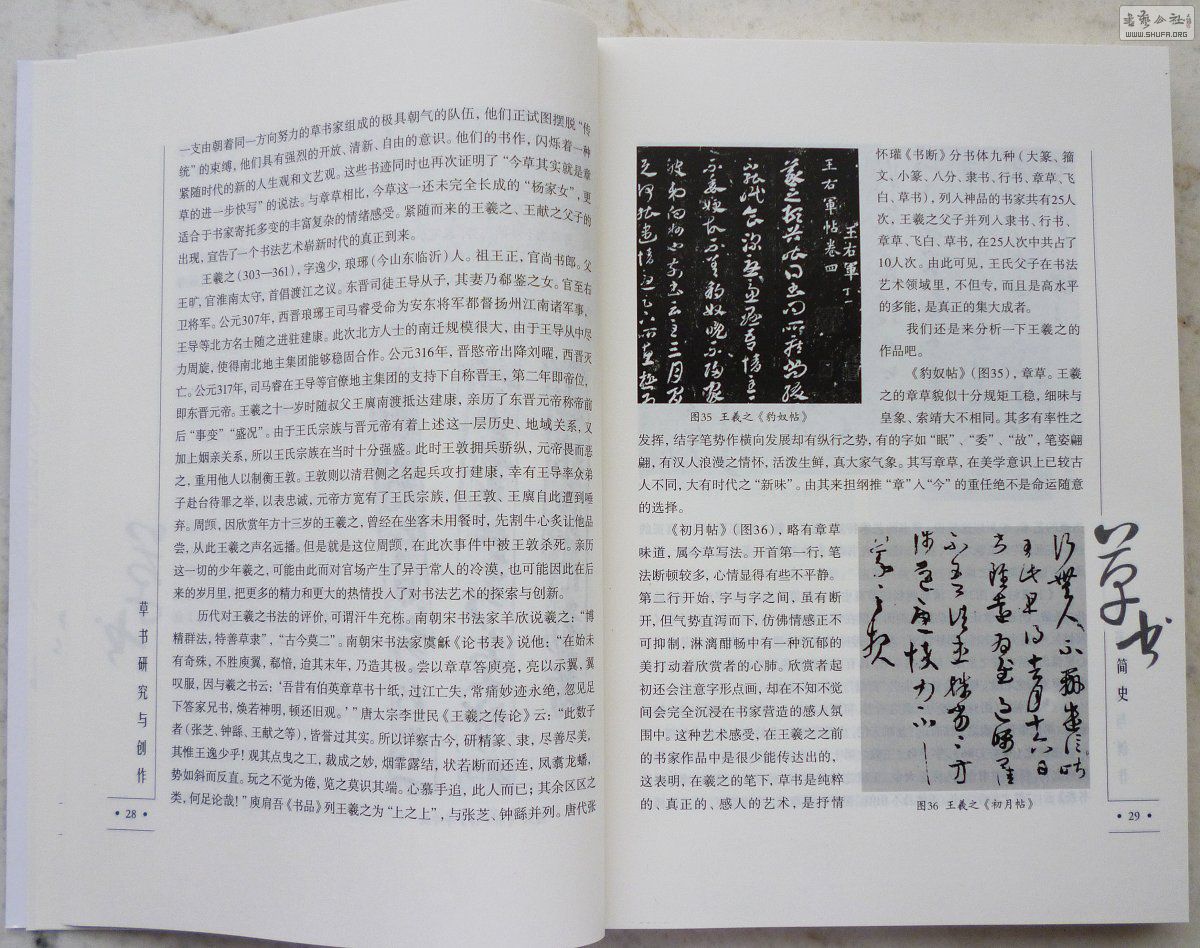 书艺公社
WWW.SHUFA.ORG
一支由朝着同一方向努力的草书家组成的极具朝气的队伍，他们正试图摆脱“传
统”的束缚，他们具有强烈的开放、清新、自由的意识。他们的书作，闪烁着一种
紧随时代的新的人生观和文艺观。这些书迹同时也再次证明了“今草其实就是章
草的进一步快写”的说法。与章草相比，今草这一还未完全长成的“杨家女”，更
适合于书家寄托多变的丰富复杂的情绪感受。紧随而来的王羲之、王献之父子的
出现，宣告了一个书法艺术崭新时代的真正到来。
王羲之（303—361），字逸少，琅琊（今山东临沂）人。祖王正，官尚书郎。父
王旷，官淮南太守，首倡渡江之议。东晋司徒王导从子，其妻乃郗鉴之女。官至右
卫将军。公元307年，西晋琅琊王司马睿受命为安东将军都督扬州江南诸军事，
王导等北方名士随之进驻建康。此次北方人士的南迁规模很大，由于王导从中尽
力周旋，使得南北地主集团能够稳固合作。公元316年，晋愍帝出降刘曜，西晋灭
亡。公元317年，司马睿在王导等官僚地主集团的支持下自称晋王，第二年即帝位，
即东晋元帝。王羲之十一岁时随叔父王廙南渡抵达建康，亲历了东晋元帝称帝前
后“事变”“盛况”。由于王氏宗族与晋元帝有着上述这一层历史、地域关系，又
加上姻亲关系，所以王氏宗族在当时十分强盛。此时王敦拥兵骄纵，元帝畏而恶
之，重用他人以制衡王敦。王敦则以清君侧之名起兵攻打建康，幸有王导率众弟
子赴台待罪之举，以表忠诚，元帝方宽有了王氏宗族，但王敦、王廙自此遭到唾
弃。周顗，因欣赏年方十三岁的王羲之，曾经在坐客未用餐时，先割牛心炙让他品
尝，从此王羲之声名远播。但是就是这位周顗，在此次事件中被王敦杀死。亲历
这一切的少年羲之，可能由此而对官场产生了异于常人的冷漠，也可能因此在后
来的岁月里，把更多的精力和更大的热情投入了对书法艺术的探索与创新。
历代对王羲之书法的评价，可谓汗牛充栋。南朝宋书法家羊欣说羲之：“博
精群法，特善草隶”，“古今莫二”。南朝宋书法家虞龢《论书表》说他：“在始未
有奇殊，不胜庾翼，郗愔，迨其末年，乃造其极。尝以章草答庾亮，亮以示翼，翼
叹服，因与羲之书云：‘吾昔有伯英章草书十纸，过江亡失，常痛妙迹永绝，忽见足
下答家兄书，焕若神明，顿还旧观。’”唐太宗李世民《王羲之传论》云：“此数子
者（张芝、钟繇、王献之等），皆誉过其实。所以详察古今，研精篆、隶，尽善尽美，
其惟王逸少乎！观其点曳之工，裁成之妙，烟霏露结，状若断而还连，凤翥龙蟠，
势如斜而反直。玩之不觉为倦，览之莫识其端。心慕手追，此人而已；其余区区之
类，何足论哉！”庾肩吾《书品》列王羲之为“上之上”，与张芝、钟繇并列。唐代张
草书研究与创作
28
王右軍帖卷四
王右軍
图35 王羲之《豹奴帖》
怀瓘《书断》分书体九种（大篆、籀
文、小篆、八分、隶书、行书、章草、飞
白、草书），列入神品的书家共有25人
次，王羲之父子并列入隶书、行书、
章草、飞白、草书，在25人次中共占了
10人次。由此可见，王氏父子在书法
艺术领域里，不但专，而且是高水平
的多能，是真正的集大成者。
我们还是来分析一下王羲之的
作品吧。
《豹奴帖》（图35），章草。王羲
之的章草貌似十分规矩工稳，细味与
皇象、索靖大不相同。其多有率性之
发挥，结字笔势作横向发展却有纵行之势，有的字如“眠”、“委”、“故”，笔姿翩
翩，有汉人浪漫之情怀，活泼生鲜，真大家气象。其写章草，在美学意识上已较古
人不同，大有时代之“新味”。由其来担纲推“章”入“今”的重任绝不是命运随意
的选择。
《初月帖》（图36），略有章草
味道，属今草写法。开首第一行，笔
法断顿较多，心情显得有些不平静。
第二行开始，字与字之间，虽有断
开，但气势直泻而下，仿佛情感正不
可抑制，淋漓酣畅中有一种沉郁的
美打动着欣赏者的心肺。欣赏者起
初还会注意字形点画，却在不知不觉
间会完全沉浸在书家营造的感人氛
围中。这种艺术感受，在王羲之之前
的书家作品中是很少能传达出的，
这表明，在羲之的笔下，草书是纯粹
的、真正的、感人的艺术，是抒情
图36 王羲之《初月帖》
草书
简史
29